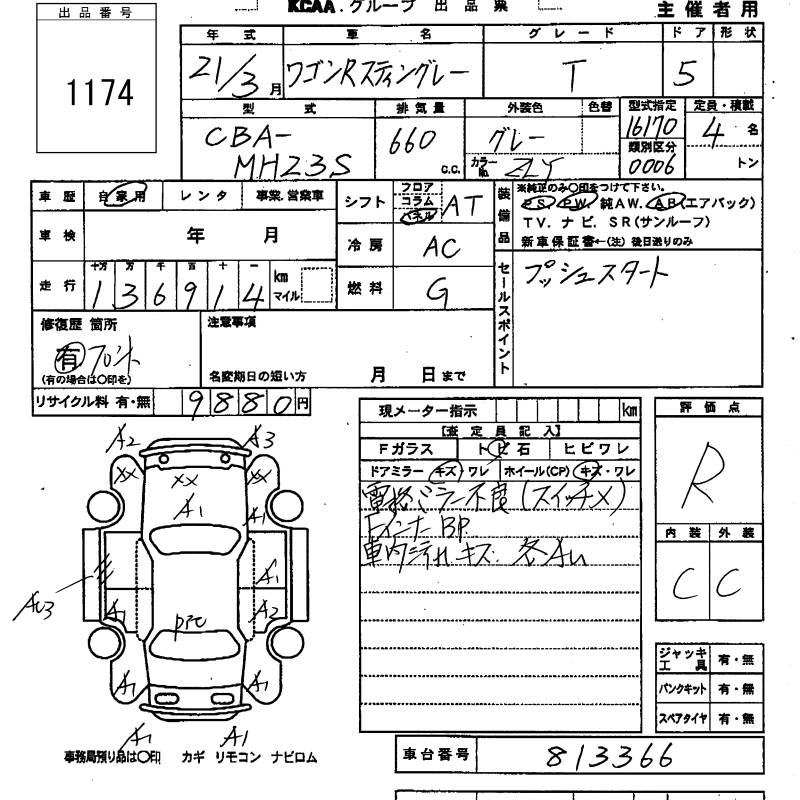 KCAA.グループ 出品票
主催者用
出品番号
1174
年式 車名 グレード ドア 形状
21/3月 ワゴンRスティングレー T 5
型式 排気量 外装色 色替 型式指定 定員・積載
CBA-
MH23S
660 c.c.
グレー
カラーNo. ZLY
16170
類別区分
0006
4 名
トン
車歴 自家用 レンタ 事業.営業車
車検 年 月
走行 十万 万 千 百 十 一
136914 km マイル
シフト フロア コラム パネル AT
冷房 AC
燃料 G
装備品
※純正のみ○印をつけて下さい。
PS. PW. 純AW. AB(エアバック)
TV. ナビ. SR(サンルーフ)
新車保証書←(注) 後日送りのみ
セールスポイント
プッシュスタート
修復歴 箇所
有 フロント
(有の場合は○印を)
注意事項
名変期日の短い方 月 日まで
リサイクル料 有・無 9880円
現メーター指示 km
【査定員記入】
Fガラス トビ石 ヒビワレ
ドアミラー キズ・ワレ ホイール(CP) キズ・ワレ
電格ミラー不良(スイッチX)
Fインナー BP
車内汚れ キズ. 各AU
評価点
R
内装 外装
C C
A2 A3
XX XX XX
A1 A1
A1
AU3 A1 A2
A1 A1
A1 A1
事務局預り品は○印 カギ リモコン ナビロム
ジャッキ工具 有・無
パンクキット 有・無
スペアタイヤ 有・無
車台番号 813366